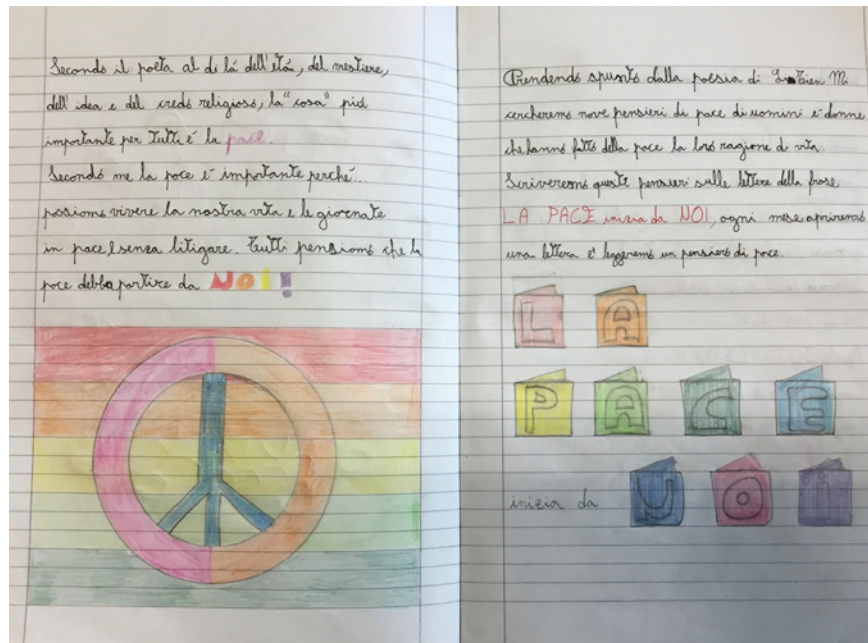 Secondo il poeta al di lá dell'etá, del mestiere,
dell'idea e del credo religioso, la "cosa" piú
importante per tutti é la pace.
Secondo me la pace é importante perché...
possiamo vivere la nostra vita e le giornate
in pace, senza litigare. Tutti pensiamo che la
pace debba partire da NOI!
Prendendo spunto dalla poesia di
cercheremo nove pensieri di pace di uomini e donne
che hanno fatto della pace la loro ragione di vita.
Scriveremo questi pensieri sulle lettere della frase
LA PACE inizia da NOI, ogni mese apriremo
una lettera e leggeremo un pensiero di pace.
LA
PACE
inizia da NOi